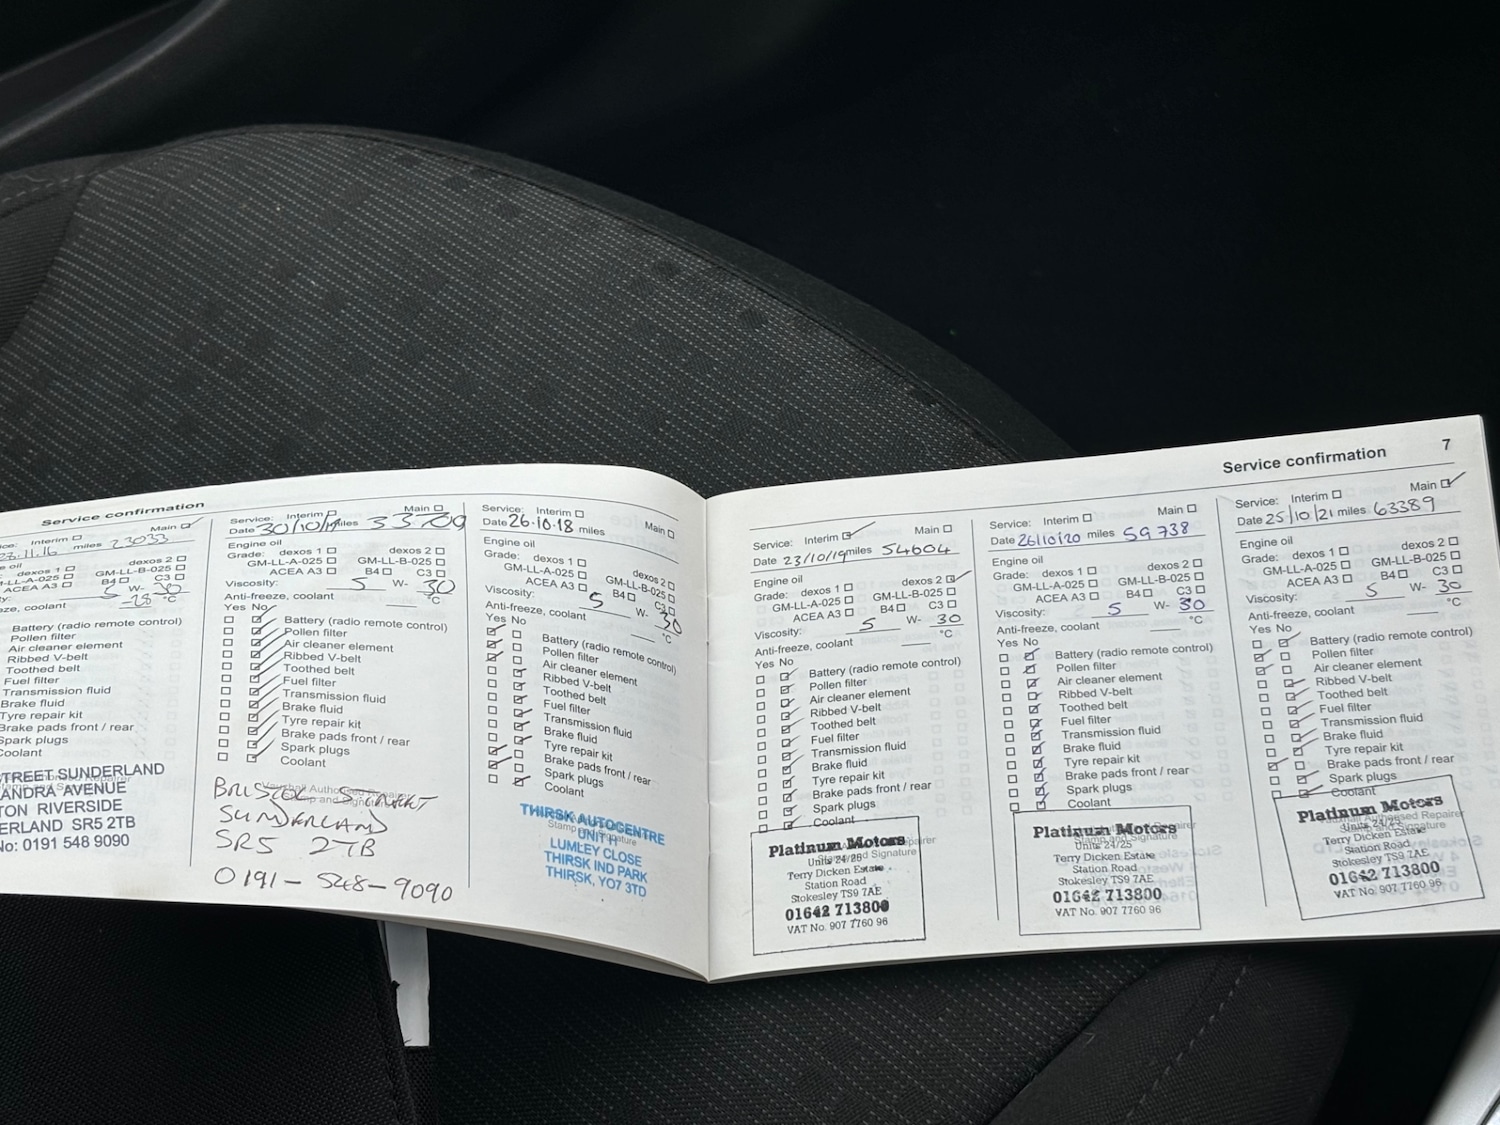 Service confirmation
Interim
Main
23.11.16 miles 23033
dexos 1 dexos 2
LL-A-025 GM-LL-B-025
ACEA A3 B4 C3
5 W- 30
coolant -28 °C
Battery (radio remote control)
Pollen filter
Air cleaner element
Ribbed V-belt
Toothed belt
Fuel filter
Transmission fluid
Brake fluid
Tyre repair kit
Brake pads front / rear
Spark plugs
Coolant
TREET SUNDERLAND
ANDRA AVENUE
TON RIVERSIDE
ERLAND SR5 2TB
No: 0191 548 9090
Service: Interim Main
Date 30/10/17 miles 33709
Engine oil
Grade: dexos 1 dexos 2
GM-LL-A-025 GM-LL-B-025
ACEA A3 B4 C3
Viscosity: 5 W- 30
Anti-freeze, coolant °C
Yes No
Battery (radio remote control)
Pollen filter
Air cleaner element
Ribbed V-belt
Toothed belt
Fuel filter
Transmission fluid
Brake fluid
Tyre repair kit
Brake pads front / rear
Spark plugs
Coolant
Vauxhall Authorised Repairer
Stamp and Signature
BRISTOL STREET
SUNDERLAND
SR5 2TB
0191-548-9090
Service: Interim Main
Date 26.10.18 miles
Engine oil
Grade: dexos 1 dexos 2
GM-LL-A-025 GM-LL-B-025
ACEA A3 B4 C3
Viscosity: 5 W- 30
Anti-freeze, coolant °C
Yes No
Battery (radio remote control)
Pollen filter
Air cleaner element
Ribbed V-belt
Toothed belt
Fuel filter
Transmission fluid
Brake fluid
Tyre repair kit
Brake pads front / rear
Spark plugs
Coolant
THIRSK AUTOCENTRE
Stamp and Signature
LUMLEY CLOSE
THIRSK IND PARK
THIRSK, YO7 3TD
7
Service confirmation
Service: Interim Main
Date 23/10/19 miles 54604
Engine oil
Grade: dexos 1 dexos 2
GM-LL-A-025 GM-LL-B-025
ACEA A3 B4 C3
Viscosity: 5 W- 30
Anti-freeze, coolant °C
Yes No
Battery (radio remote control)
Pollen filter
Air cleaner element
Ribbed V-belt
Toothed belt
Fuel filter
Transmission fluid
Brake fluid
Tyre repair kit
Brake pads front / rear
Spark plugs
Coolant
Platinum Motors
Units 24/25
Terry Dicken Estate
Station Road
Stokesley TS9 7AE
01642 713800
VAT No. 907 7760 96
Service: Interim Main
Date 26/10/20 miles 59738
Engine oil
Grade: dexos 1 dexos 2
GM-LL-A-025 GM-LL-B-025
ACEA A3 B4 C3
Viscosity: 5 W- 30
Anti-freeze, coolant °C
Yes No
Battery (radio remote control)
Pollen filter
Air cleaner element
Ribbed V-belt
Toothed belt
Fuel filter
Transmission fluid
Brake fluid
Tyre repair kit
Brake pads front / rear
Spark plugs
Coolant
Platinum Motors
Units 24/25
Terry Dicken Estate
Station Road
Stokesley TS9 7AE
01642 713800
VAT No. 907 7760 96
Service: Interim Main
Date 25/10/21 miles 63389
Engine oil
Grade: dexos 1 dexos 2
GM-LL-A-025 GM-LL-B-025
ACEA A3 B4 C3
Viscosity: 5 W- 30
Anti-freeze, coolant °C
Yes No
Battery (radio remote control)
Pollen filter
Air cleaner element
Ribbed V-belt
Toothed belt
Fuel filter
Transmission fluid
Brake fluid
Tyre repair kit
Brake pads front / rear
Spark plugs
Coolant
Platinum Motors
Units 24/25
Terry Dicken Estate
Station Road
Stokesley TS9 7AE
01642 713800
VAT No. 907 7760 96